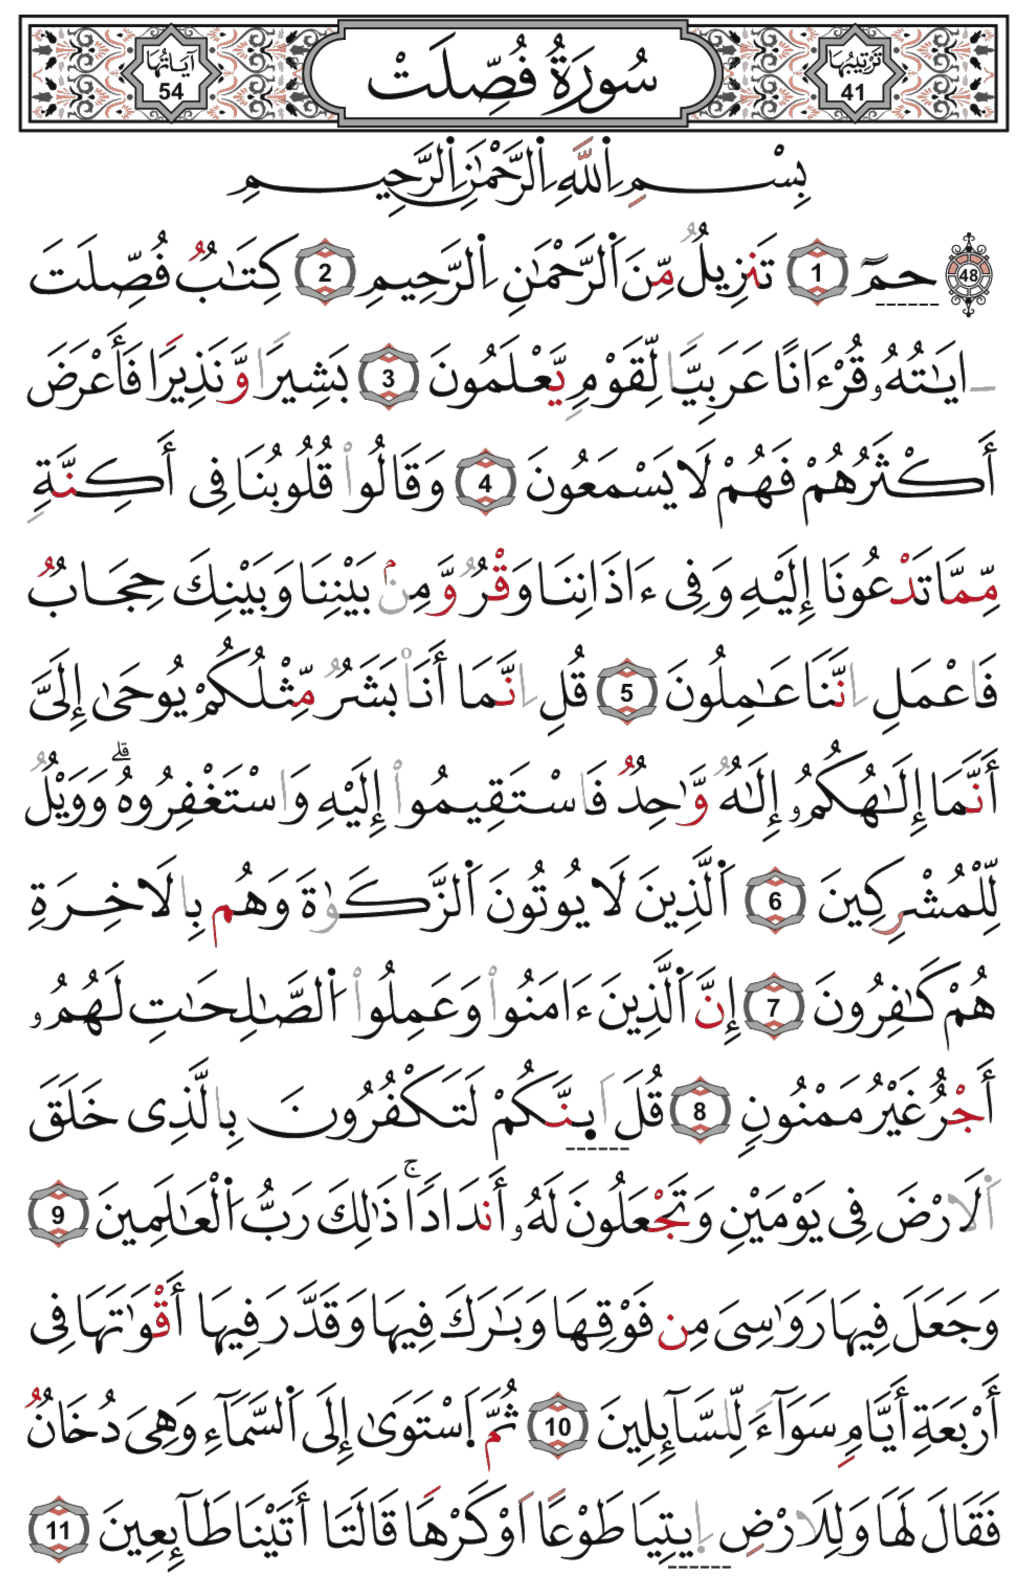 تَرْتِيبُهَا 41 سُورَةُ فُصِّلَتْ آيَاتُهَا 54
بِسْمِ اِللَّهِ اِلرَّحْمَٰنِ اِلرَّحِيمِ
48 حمٓ 1 تَنزِيلٌ مِّنَ اَلرَّحْمَٰنِ اِلرَّحِيمِ 2 كِتَٰبٌ فُصِّلَتَ
ايَٰتُهُۥ قُرْءَانًا عَرَبِيًّا لِّقَوْمٍ يَّعْلَمُونَ 3 بَشِيرًا وَّنَذِيرًا فَأَعْرَضَ
أَكْثَرُهُمْ فَهُمْ لَا يَسْمَعُونَ 4 وَقَالُواْ قُلُوبُنَا فِى أَكِنَّةٍ
مِّمَّا تَدْعُونَا إِلَيْهِ وَفِى ءَاذَانِنَا وَقْرٌ وَّمِنۢ بَيْنِنَا وَبَيْنِكَ حِجَابٌ
فَاعْمَلِ اِنَّنَا عَٰمِلُونَ 5 قُلِ اِنَّمَا أَنَا۠ بَشَرٌ مِّثْلُكُمْ يُوحَىٰ إِلَىَّ
أَنَّمَا إِلَٰهُكُمُۥ إِلَٰهٌ وَّٰحِدٌ فَاسْتَقِيمُواْ إِلَيْهِ وَاسْتَغْفِرُوهُ ۗ وَوَيْلٌ
لِّلْمُشْرِكِينَ 6 اَلَّذِينَ لَا يُوتُونَ اَلزَّكَوٰةَ وَهُم بِالَاخِرَةِ
هُمْ كَٰفِرُونَ 7 إِنَّ اَلَّذِينَ ءَامَنُواْ وَعَمِلُواْ اُلصَّٰلِحَٰتِ لَهُمُۥ
أَجْرٌ غَيْرُ مَمْنُونٍ 8 قُلَ اَٜبِنَّكُمْ لَتَكْفُرُونَ بِالَّذِى خَلَقَ
اَلَارْضَ فِى يَوْمَيْنِ وَتَجْعَلُونَ لَهُۥ أَندَادًا ۚ ذَٰلِكَ رَبُّ اُلْعَٰلَمِينَ 9
وَجَعَلَ فِيهَا رَوَٰسِىَ مِن فَوْقِهَا وَبَٰرَكَ فِيهَا وَقَدَّرَ فِيهَا أَقْوَٰتَهَا فِى
أَرْبَعَةِ أَيَّامٍ سَوَآءً لِّلسَّآئِلِينَ 10 ثُمَّ اَسْتَوَىٰ إِلَى اَلسَّمَآءِ وَهِىَ دُخَانٌ
فَقَالَ لَهَا وَلِلَارْضِ اِيتِيَا طَوْعًا اَوْ كَرْهًا قَالَتَا أَتَيْنَا طَآئِعِينَ 11